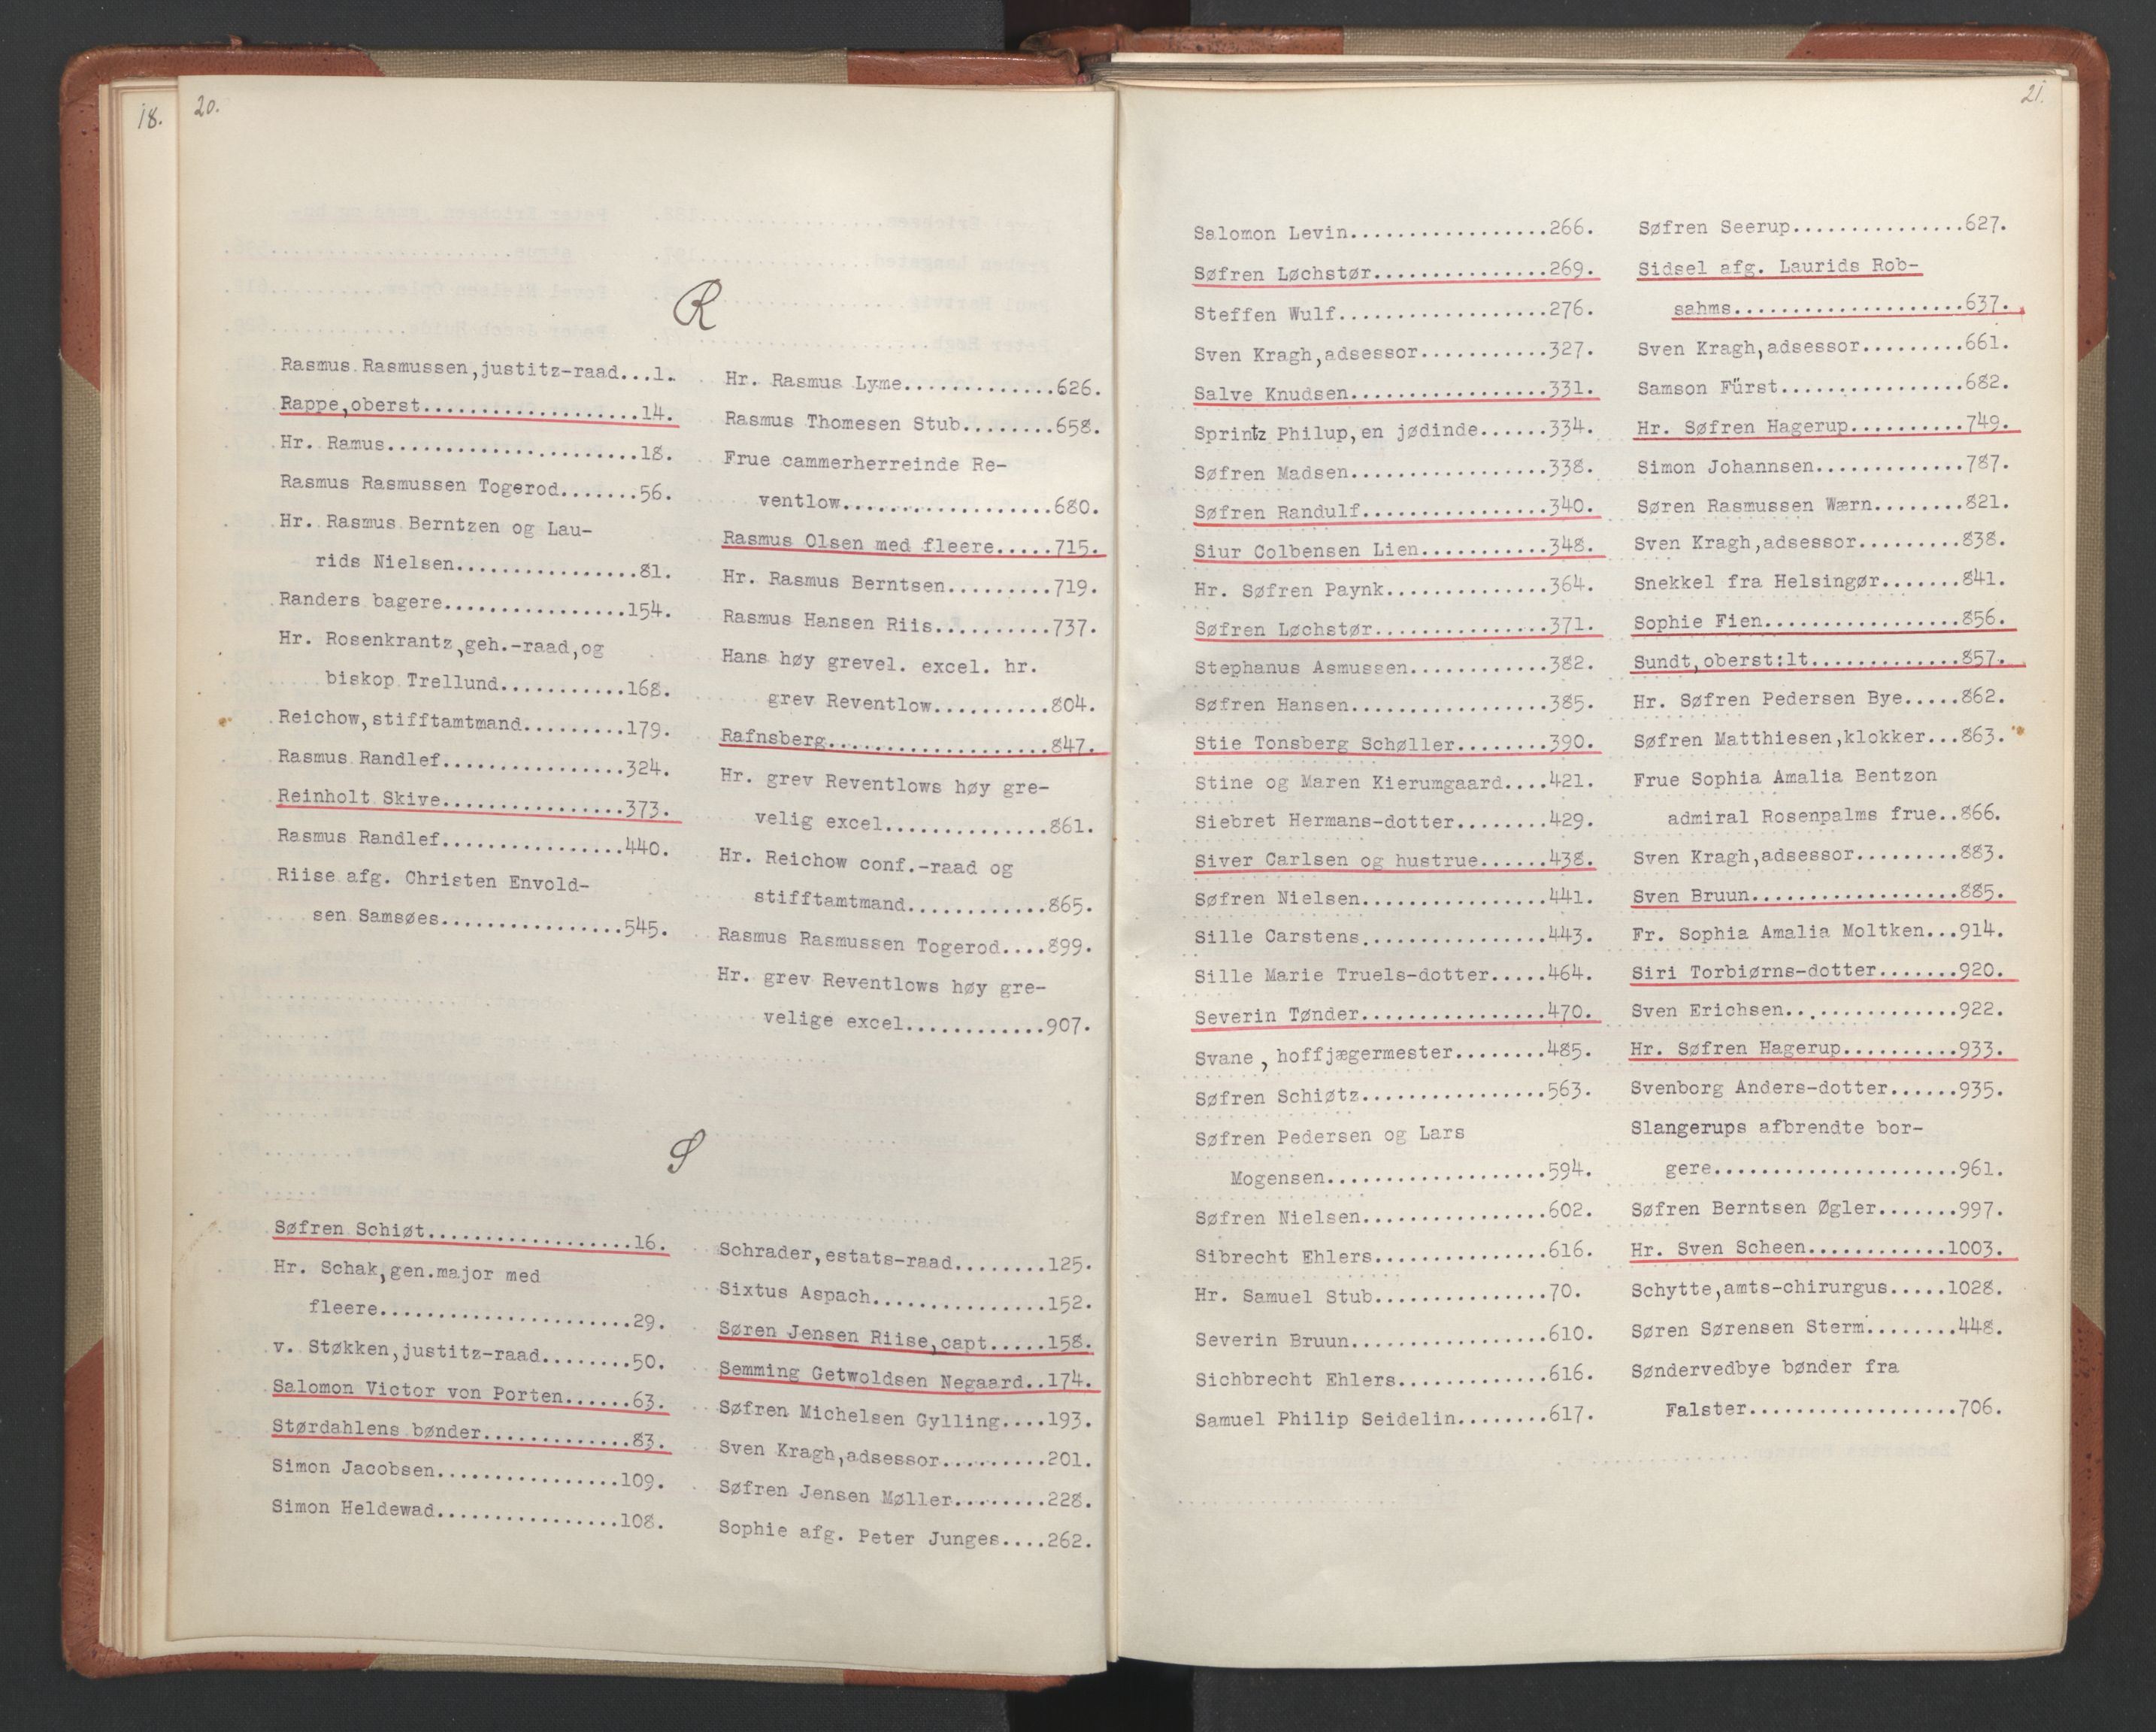 18.
20.
R
Rasmus Rasmussen,justitz-raad...1.
Rappe,oberst...................14.
Hr. Ramus......................18.
Rasmus Rasmussen Togerod.......56.
Hr. Rasmus Berntzen og Lau-
rids Nielsen................81.
Randers bagere................154.
Hr. Rosenkrantz,geh.-raad,og
biskop Trellund...........168.
Reichow,stifftamtmand.........179.
Rasmus Randlef................324.
Reinholt Skive................373.
Rasmus Randlef................440.
Riise afg. Christen Envold-
sen Samsøes................545.
Hr. Rasmus Lyme.............626.
Rasmus Thomesen Stub........658.
Frue cammerherreinde Re-
ventlow..................680.
Rasmus Olsen med fleere.....715.
Hr. Rasmus Berntsen.........719.
Rasmus Hansen Riis..........737.
Hans høy grevel. excel. hr.
grev Reventlow..........804.
Rafnsberg...................847.
Hr. grev Reventlows høy gre-
velig excel..............861.
Hr. Reichow conf.-raad og
stifftamtmand............865.
Rasmus Rasmussen Togerod....899.
Hr. grev Reventlows høy gre-
velige excel............907.
S
Søfren Schiøt..................16.
Hr. Schak,gen.major med
fleere......................29.
v. Støkken,justitz-raad........50.
Salomon Victor von Porten......63.
Størdahlens bønder.............83.
Simon Jacobsen................109.
Simon Heldewad................108.
Schrader,estats-raad........125.
Sixtus Aspach...............152.
Søren Jensen Riise,capt.....158.
Semming Getwoldsen Negaard..174.
Søfren Michelsen Gylling....193.
Sven Kragh,adsessor.........201.
Søfren Jensen Møller........228.
Sophie afg. Peter Junges....262.
21.
Salomon Levin..................266.
Søfren Løchstør................269.
Steffen Wulf...................276.
Sven Kragh,adsessor...........327.
Salve Knudsen..................331.
Sprintz Philup,en jødinde......334.
Søfren Madsen..................338.
Søfren Randulf.................340.
Siur Colbensen Lien............348.
Hr. Søfren Paynk...............364.
Søfren Løchstør................371.
Stephanus Asmussen.............382.
Søfren Hansen..................385.
Stie Tonsberg Schøller.........390.
Stine og Maren Kierumgaard....421.
Siebret Hermans-dotter.........429.
Siver Carlsen og hustrue......438.
Søfren Nielsen.................441.
Sille Carstens.................443.
Sille Marie Truels-dotter.....464.
Severin Tønder.................470.
Svane, hoffjægermester........485.
Søfren Schiøtz.................563.
Søfren Pedersen og Lars
Mogensen....................594.
Søfren Nielsen.................602.
Sibrecht Ehlers................616.
Hr. Samuel Stub................70.
Severin Bruun..................610.
Sichbrecht Ehlers..............616.
Samuel Philip Seidelin.........617.
Søfren Seerup................627.
Sidsel afg. Laurids Rob-
sahms.....................637.
Sven Kragh,adsessor.........661.
Samson Fürst.................682.
Hr. Søfren Hagerup...........749.
Simon Johannsen..............787.
Søren Rasmussen Wærn.........821.
Sven Kragh,adsessor..........838.
Snekkel fra Helsingør........841.
Sophie Fien..................856.
Sundt,oberst:lt..............857.
Hr. Søfren Pedersen Bye.....862.
Søfren Matthiesen,klokker...863.
Frue Sophia Amalia Bentzon
admiral Rosenpalms frue..866.
Sven Kragh,adsessor..........883.
Sven Bruun...................885.
Fr. Sophia Amalia Moltken...914.
Siri Torbiørns-dotter........920.
Sven Erichsen................922.
Hr. Søfren Hagerup...........933.
Svenborg Anders-dotter......935.
Slangerups afbrendte bor-
gere.......................961.
Søfren Berntsen Øgler.......997.
Hr. Sven Scheen............1003.
Schytte,amts-chirurgus.....1028.
Søren Sørensen Sterm.........448.
Søndervedbye bønder fra
Falster...................706.